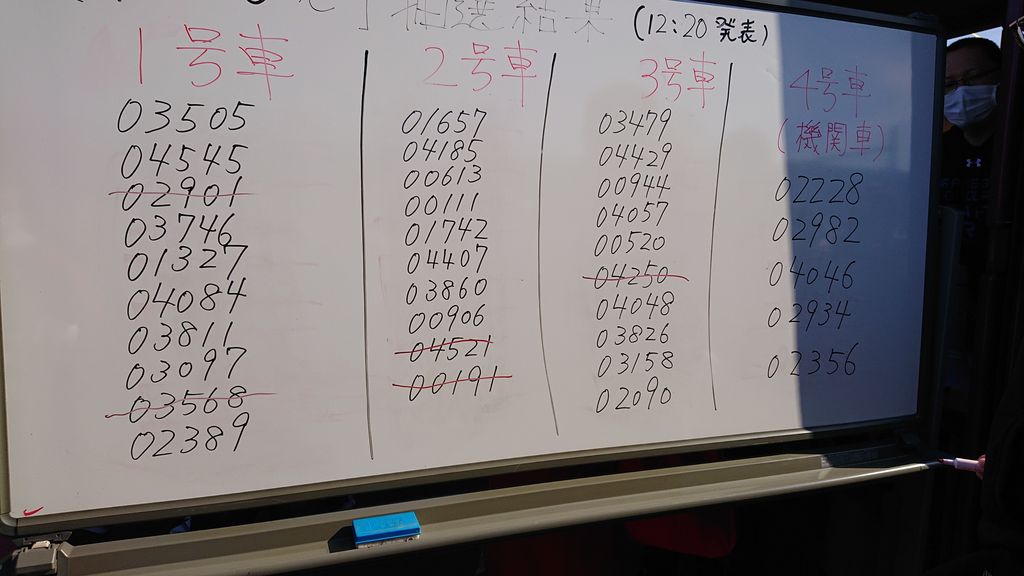 抽選結果 (12:20 発表)
1号車
03505
04545
02901
03746
01327
04084
03811
03097
03568
02389
2号車
01657
04185
00613
00111
01742
04407
03860
00906
04521
00191
3号車
03479
04429
00944
04057
00520
04250
04048
03826
03158
02090
4号車
(機関車)
02228
02982
04046
02934
02356